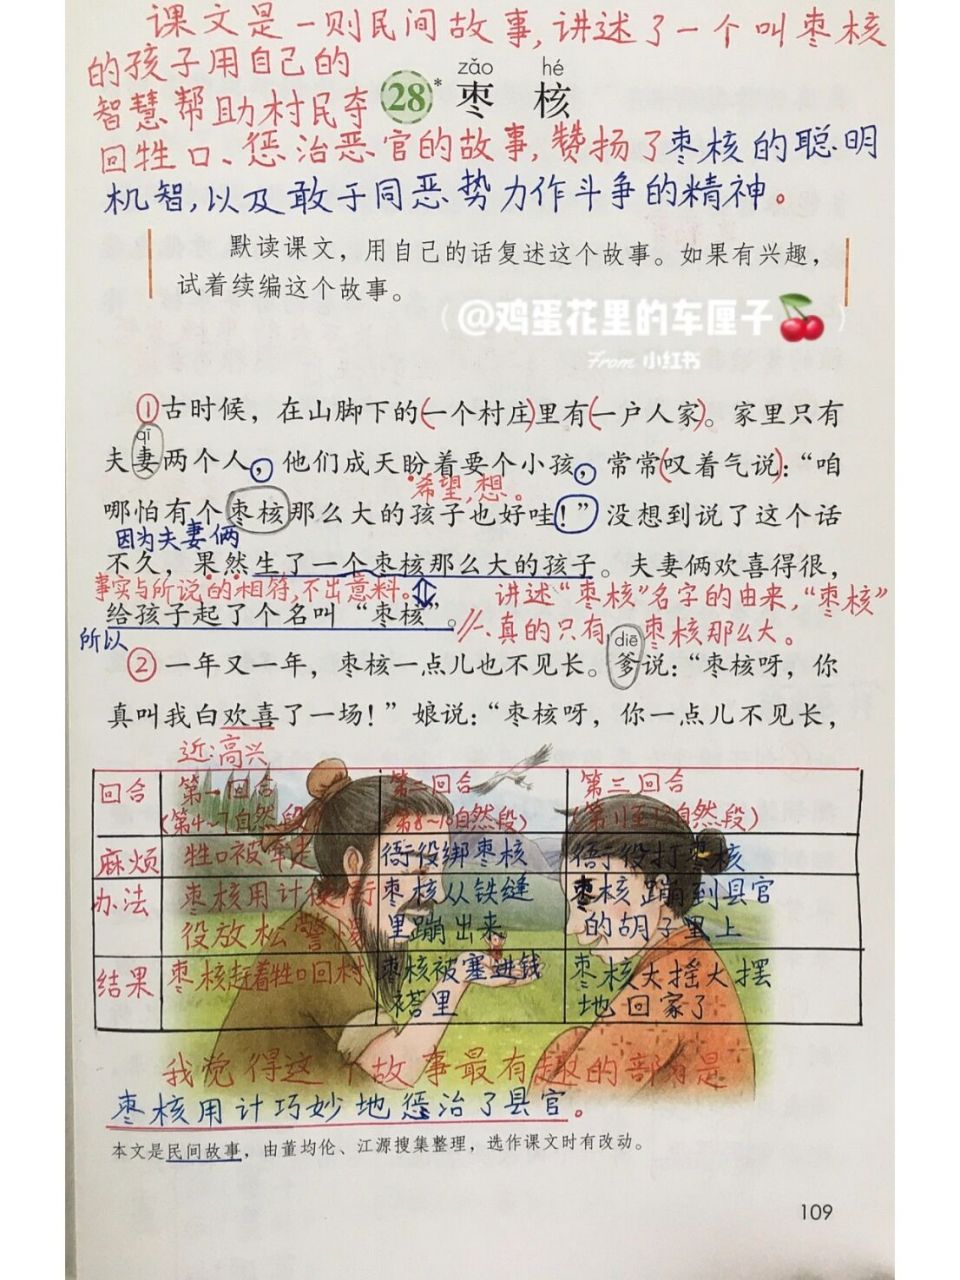 课文是一则民间故事,讲述了一个叫枣核
的孩子用自己的
智慧帮助村民夺
回牲口、惩治恶官的故事,赞扬了枣核的聪明
机智,以及敢于同恶势力作斗争的精神。
zǎo hé
28* 枣 核
默读课文，用自己的话复述这个故事。如果有兴趣，
试着续编这个故事。
@鸡蛋花里的车厘子
From 小红书
①古时候，在山脚下的(一个村庄)里有(一户人家)。家里只有
qī
夫妻两个人，他们成天盼着要个小孩，常常(叹着气说)：“咱
希望,想。
哪怕有个枣核那么大的孩子也好哇！”没想到说了这个话
因为夫妻俩
不久，果然生了一个枣核那么大的孩子。夫妻俩欢喜得很，
事实与所说的相符,不出意料。
讲述“枣核”名字的由来,“枣核”
给孩子起了个名叫“枣核”。
真的只有枣核那么大。
所以
diē
②一年又一年，枣核一点儿也不见长。爹说：“枣核呀，你
真叫我白欢喜了一场！”娘说：“枣核呀，你一点儿不见长，
近:高兴
回合 第一回合 第二回合 第三回合
(第4~7自然段) (第8~10自然段) 自然段)
麻烦 牲口被牵走 衙役绑枣核 衙役打枣核
办法 枣核用计使衙 枣核从铁缝 枣核蹦到县官
役放松警惕 里蹦出来 的胡子里上
结果 枣核赶着牲口回村 枣核被塞进钱 枣核大摇大摆
褡里 地回家了
我觉得这个故事最有趣的部分是
枣核用计巧妙地惩治了县官。
本文是民间故事，由董均伦、江源搜集整理，选作课文时有改动。
109